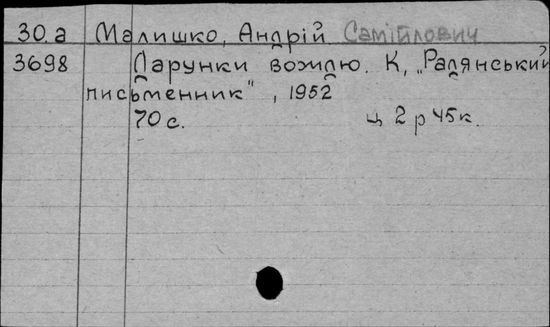 30.а Малишко, Андрій Самійлович
3698 Дарунки вождю. К, „Радянський
письменник" , 1952
70 с. ц 2 р 45 к.